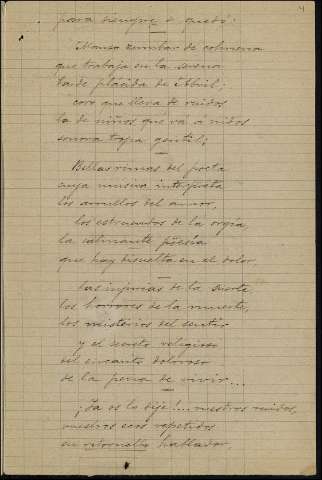 4
para siempre o quedó.
Manso zumbar de colmena
que trabaja en la serena
tarde plácida de Abril;
coro que lleva de ruidos
la de niños que va á nidos
sonora tropa gentil;
Bellas rimas del poeta
cuya música interpreta
los arrullos del amor,
los estruendos de la orgía,
la calmante poesía
que hay disuelta en el dolor,
las injurias de la suerte
los horrores de la muerte,
los misterios del sentir
y el secreto religioso
del encanto doloroso
de la pena de vivir...
¡Ya os lo dije!.... nuestros ruidos,
nuestros ecos repetidos
en retornello hablador,